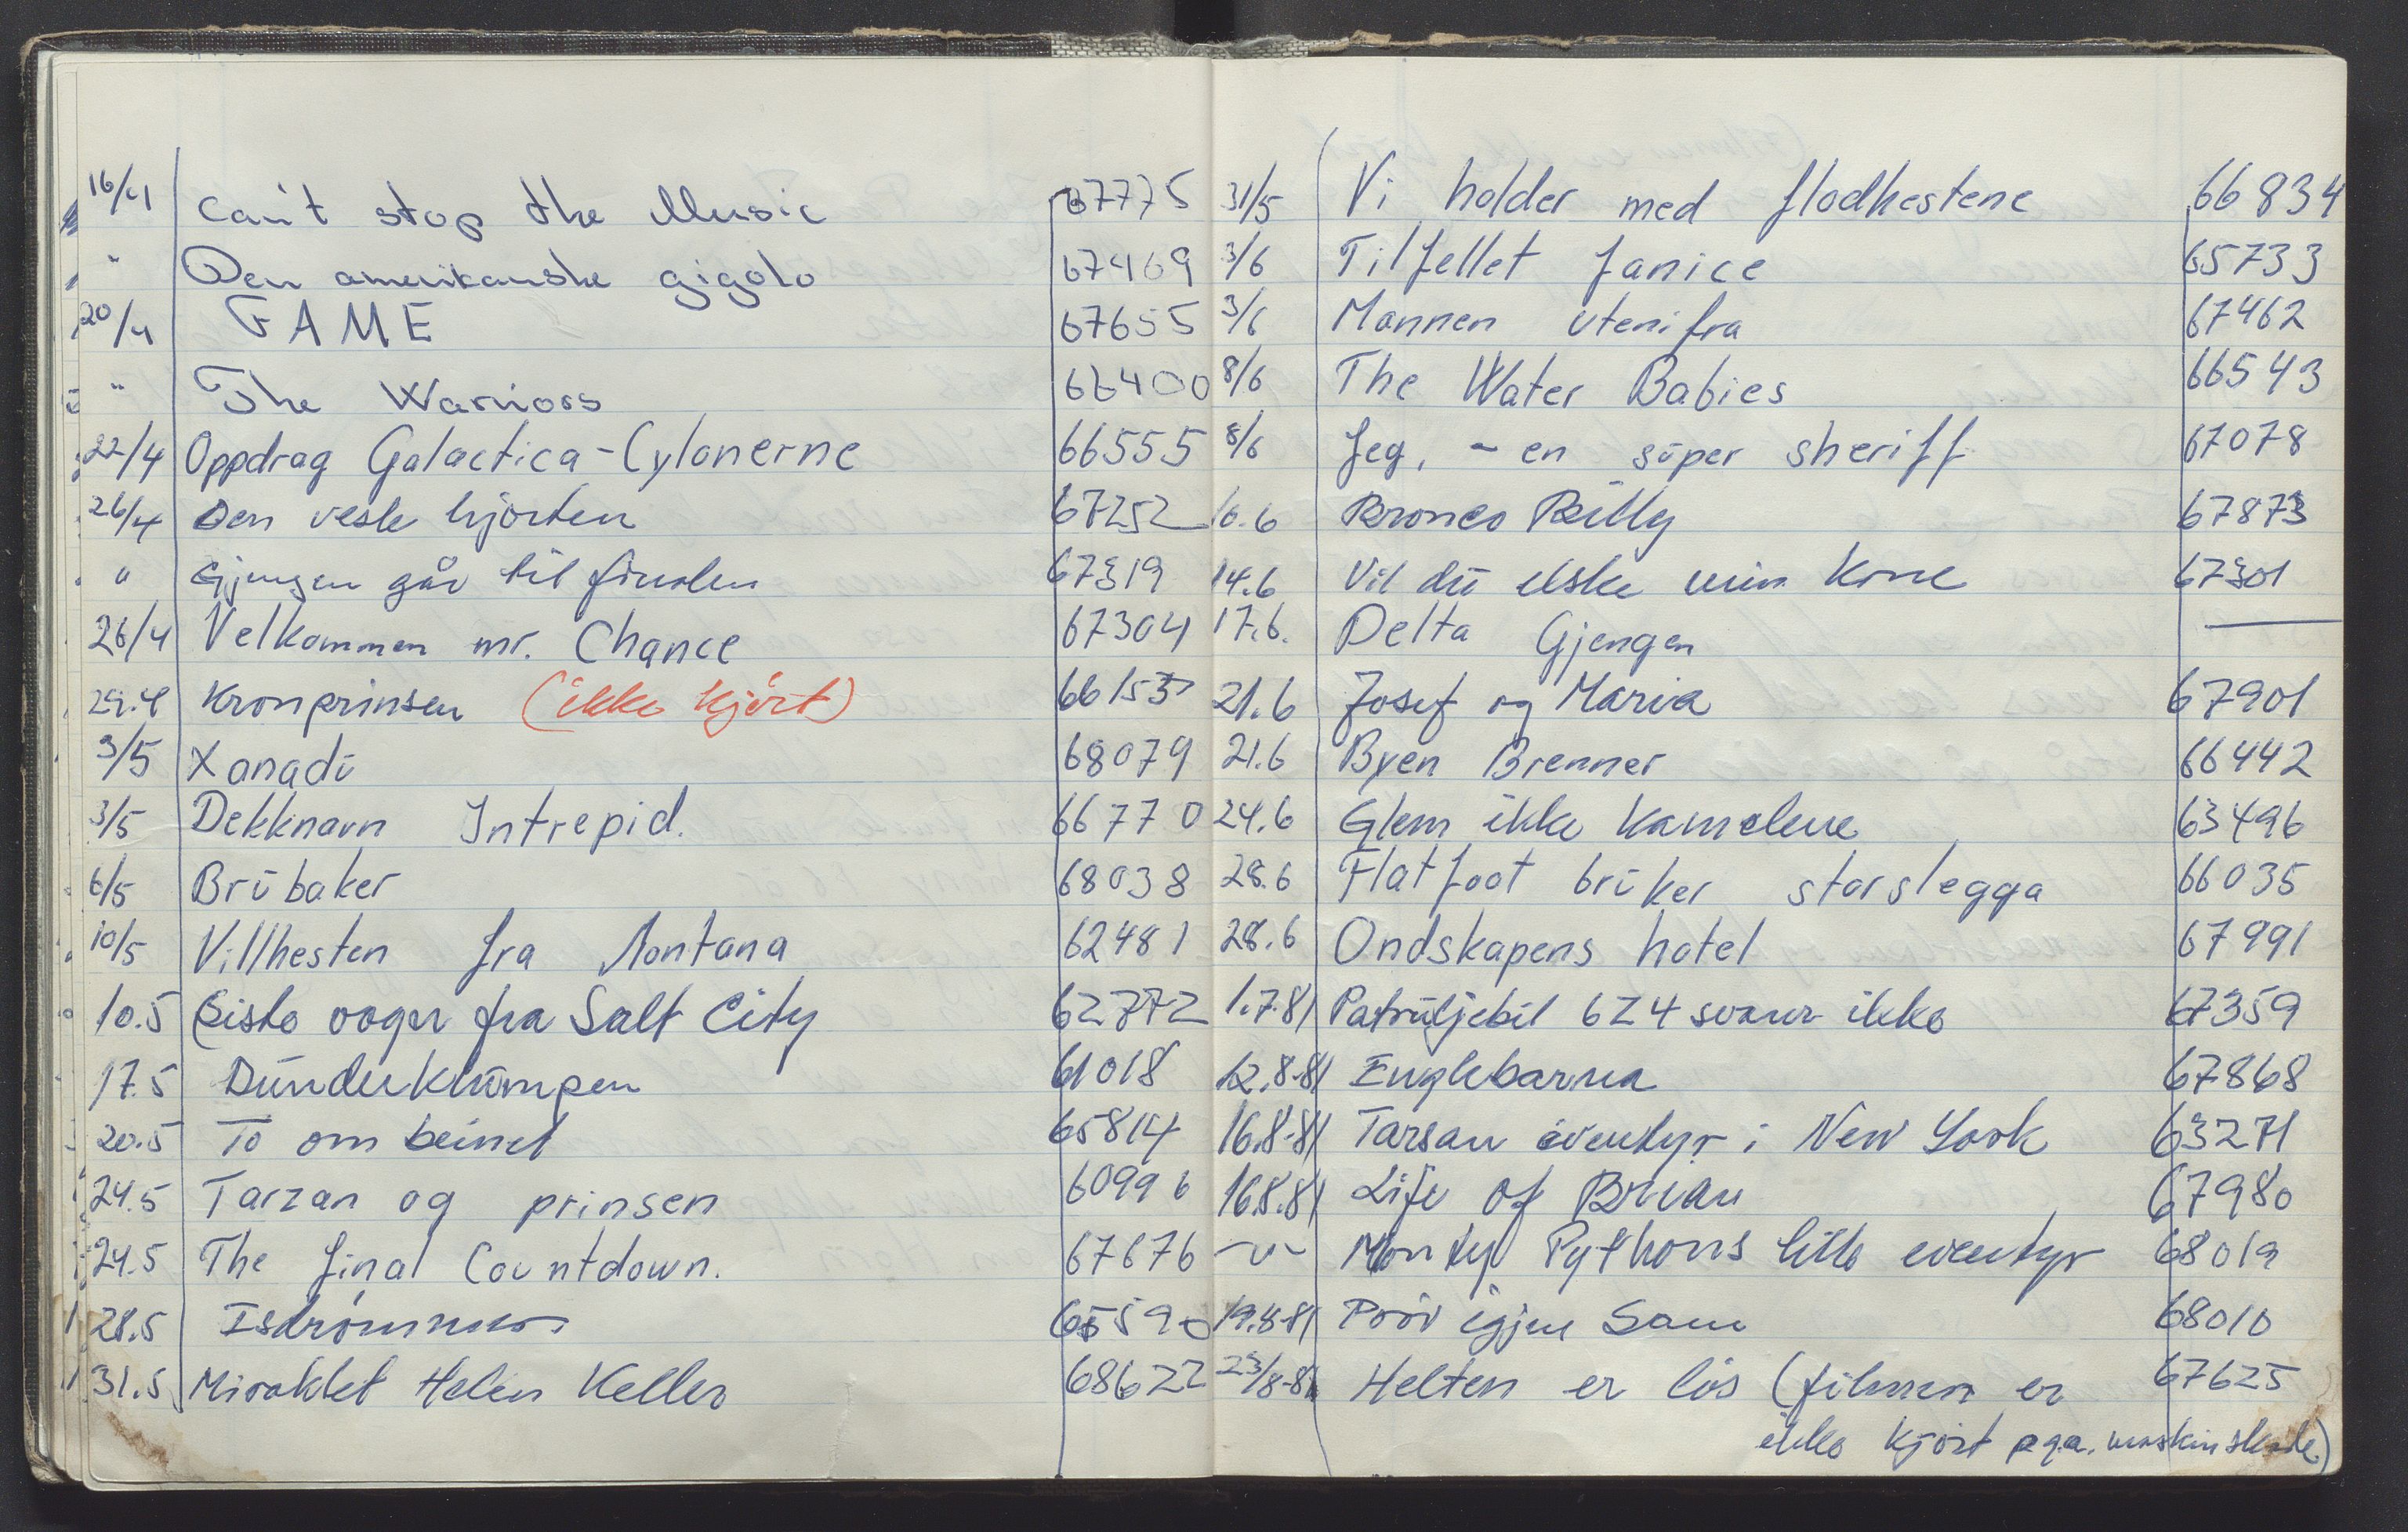 16/4 Can't stop the Music 67775
" Den amerikanske gigolo 67469
20/4 FAME 67655
" The Warriors 66400
22/4 Oppdrag Galactica - Cylonerne 66555
26/4 Den vesle hjorten 67252
" Gjengen går til finalen 67319
26/4 Velkommen mr. Chance 67304
29.4 Kronprinsen (ikke kjört) 66153
3/5 Xanadū 68079
3/5 Dekknavn Intrepid. 66770
6/5 Brūbaker 68038
10/5 Villhesten fra Montana 62481
10.5 Siste vogn fra Salt City 62772
17.5 Dūnderklūmpen 61018
20.5 To om beinet 65814
24.5 Tarzan og prinsen 60996
24.5 The final Countdown. 67676
28.5 Isdrömmen 65590
31.5 Miraklet Helen Keller 68622
31/5 Vi holder med flodhestene 66834
3/6 Tilfellet Janice 65733
3/6 Mannen utenifra 67462
8/6 The Water Babies 66543
8/6 Jeg, - en sūper sheriff 67078
10.6 Bronco Billy 67873
14.6 Vil dū elske min kone 67301
17.6. Delta Gjengen —
21.6 Josef og Maria 67901
21.6 Byen Brenner 66442
24.6 Glem ikke kamelene 63496
28.6 Flatfoot brūker storslegga 66035
28.6 Ondskapens hotel 67991
1.7.81 Patrūljebil 624 svarer ikke 67359
12.8.81 Englebarna 67868
16.8-81 Tarsan eventyr i New York 63271
16.8.81 Life of Brian 67980
-"- Monty Pythons lille eventyr 68019
19.8-81 Pröv igjen Sam 68010
23/8-81 Helten er lös (filmen er 67625
ikke kjört p.g.a. maskinskade)